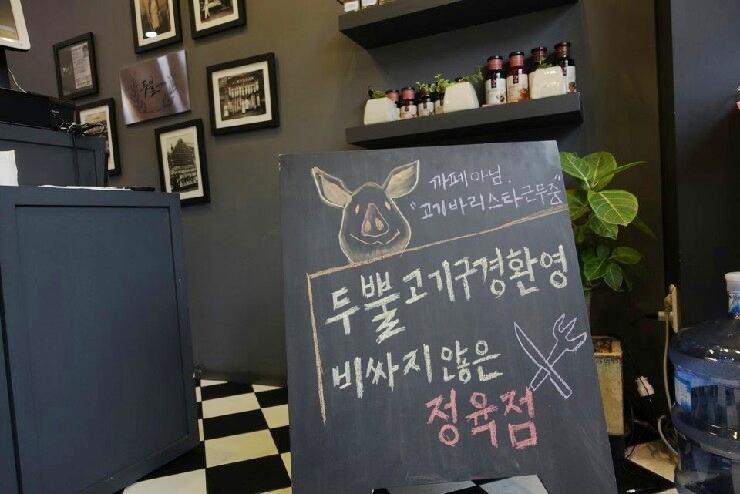 까페아님.
"고기바리스타근무중"
두뿔고기구경환영
비싸지 않은
정육점